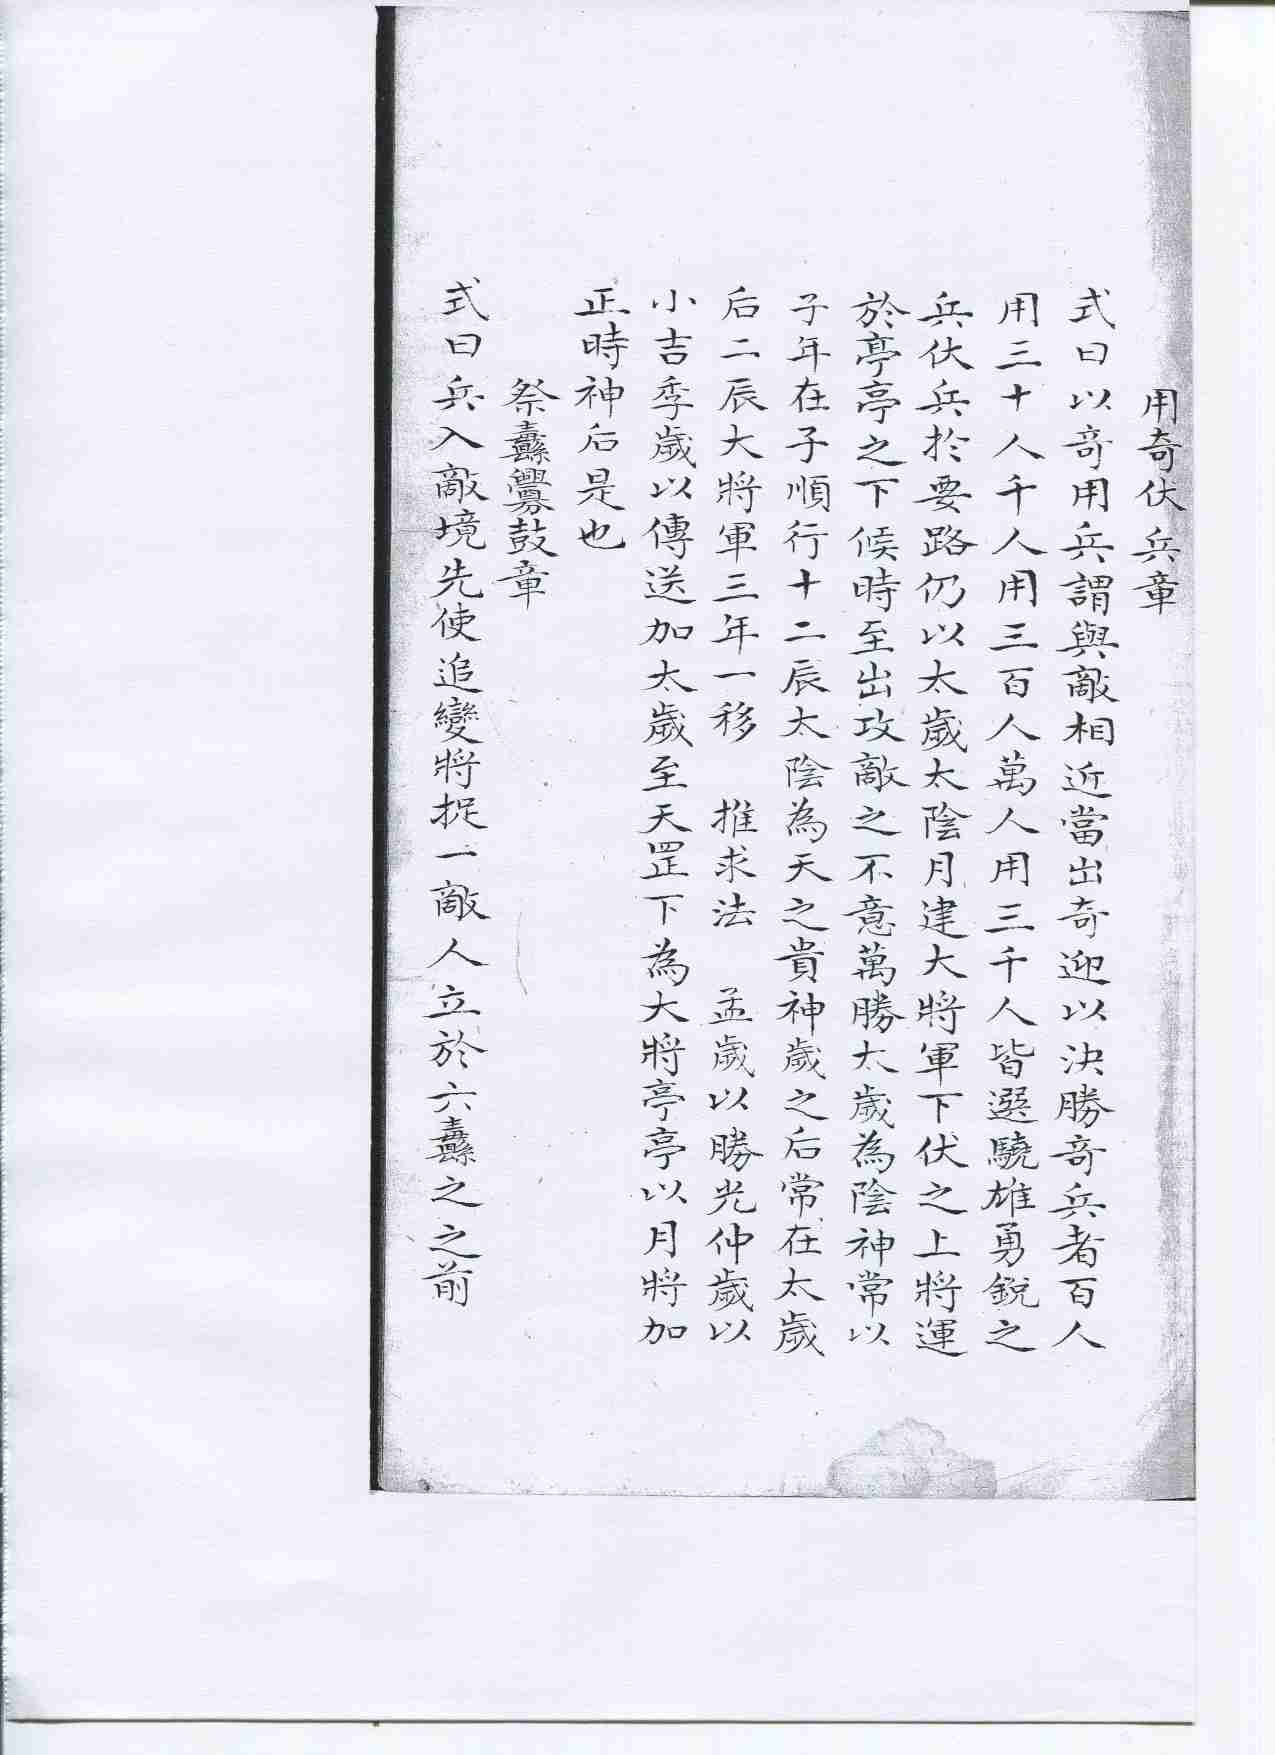 用奇伏兵章
式曰以奇用兵謂與敵相近當出奇迎以決勝奇兵者百人
用三十人千人用三百人萬人用三千人皆選驍雄勇銳之
兵伏兵於要路仍以太歲太陰月建大將軍下伏之上將運
於亭亭之下候時至出攻敵之不意萬勝太歲為陰神常以
子年在子順行十二辰太陰為天之貴神歲之后常在太歲
后二辰大將軍三年一移　推求法　孟歲以勝光仲歲以
小吉季歲以傳送加太歲至天罡下為大將亭亭以月將加
正時神后是也
祭纛釁鼓章
式曰兵入敵境先使追變將捉一敵人立於六纛之之前